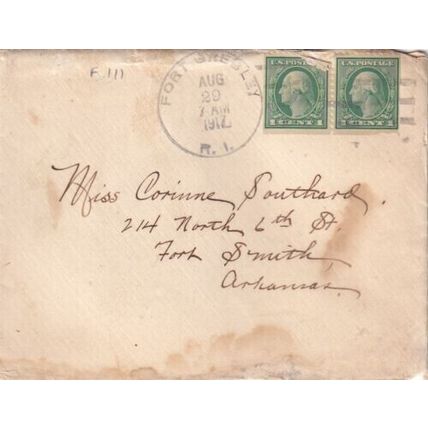 F 111
FORT GREBLEY
AUG
29
7 AM
1917
R. I.
U.S. POSTAGE
1 CENT 1
U.S. POSTAGE
1 CENT 1
Miss Corinne Southard.
214 North 6th St.
Fort Smith,
Arkansas.